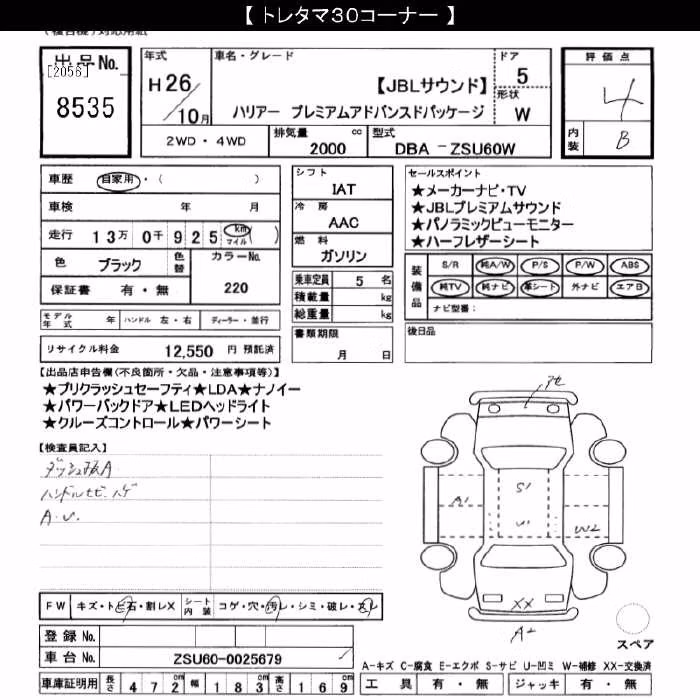 【 トレタマ30コーナー 】
(複合機)対応用紙
出品No.
[2056]
8535
年式
H26/10月
車名・グレード
【JBLサウンド】
ハリアー プレミアムアドバンスドパッケージ
ドア
5
形状
W
2WD・4WD
排気量 2000 cc
型式 DBA -ZSU60W
評価点
4
内装 B
車歴 自家用・( )
車検 年 月
走行 13万 0千 9 2 5 km マイル ( )
色 ブラック 色替
カラーNo. 220
保証書 有・無
シフト
IAT
冷房
AAC
燃料
ガソリン
乗車定員 5 名
積載量 kg
総重量 kg
セールスポイント
★メーカーナビ・TV
★JBLプレミアムサウンド
★パノラミックビューモニター
★ハーフレザーシート
装備品
S/R 純A/W P/S P/W ABS
純TV 純ナビ 革シート 外ナビ エアB
ナビ型番:
モデル年式 年 ハンドル 左・右 ディーラー・並行
書類期限
月 日
後日品
リサイクル料金 12,550 円 預託済
【出品店申告欄(不良箇所・欠品・注意事項等)】
★プリクラッシュセーフティ★LDA★ナノイー
★パワーバックドア★LEDヘッドライト
★クルーズコントロール★パワーシート
【検査員記入】
ダッシュ板A
ハンドルセビ ハゲ
A.U.
アセ
A1
S1
U1
W2
XX
A2
スペア
FW キズ・トビ石・割レX
シート内装 コゲ・穴・汚レ・シミ・破レ・スレ
登録 No.
車台 No. ZSU60-0025679
A-キズ C-腐食 E-エクボ S-サビ U-凹ミ W-補修 XX-交換済
車庫証明用 長さ 4 7 2 cm 幅 1 8 3 cm 高さ 1 6 9 cm
工具 有・無 ジャッキ 有・無